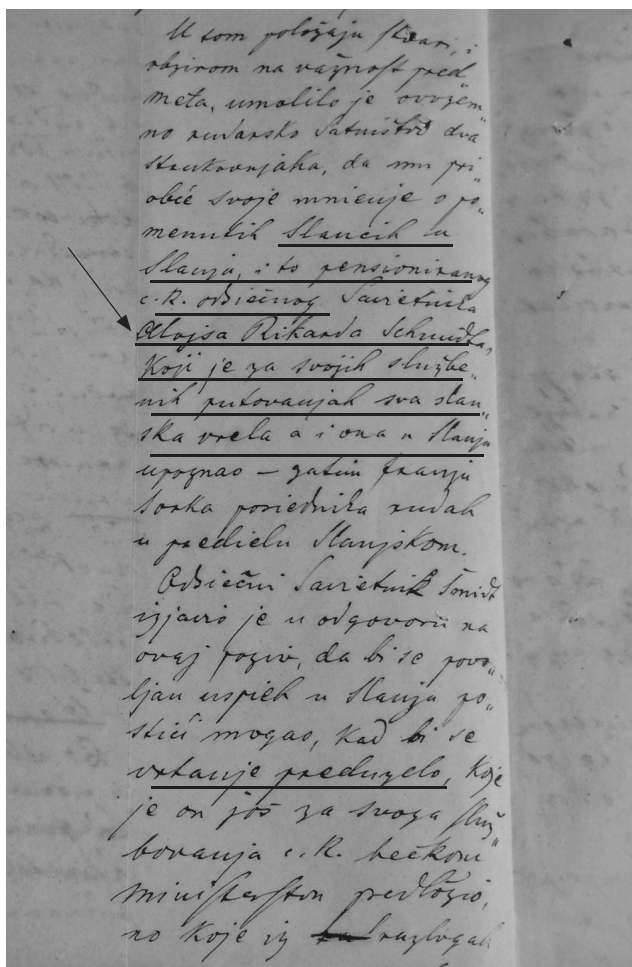 U tom položaju stvari, i
obzirom na važnost pred„
meta, umolilo je ovozem„
no rudarsko Satništvo dva
strukovnjaka, da mu pri„
obće svoje mnienje o po„
menutih Slancih u
Slanju, i to pensioniranog
c. k. odsiečnog Savietnika
Alojsa Rikarda Schmidta,
Koji je za svojih službe„
nih putovanjah sva slan„
ska vrela a i ona u Slanju
upoznao — zatim Franju
Sorka posiednika rudah
u predielu Slanjskom.
Odsiečni Savietnik Šmidt
izjavio je u odgovoru na
ovaj poziv, da bi se povo„
ljan uspieh u Slanju po„
stići mogao, kad bi se
vrtanje preduzelo, koje
je on još za svoga služ„
bovanja c. k. bečkom
ministerstvu predložio,
no koje iz razlogah